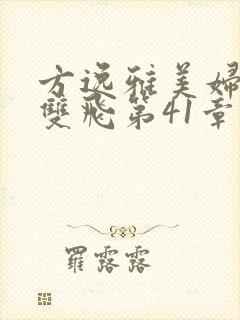 方逸雅美婦
雙飛第41章
羅露露